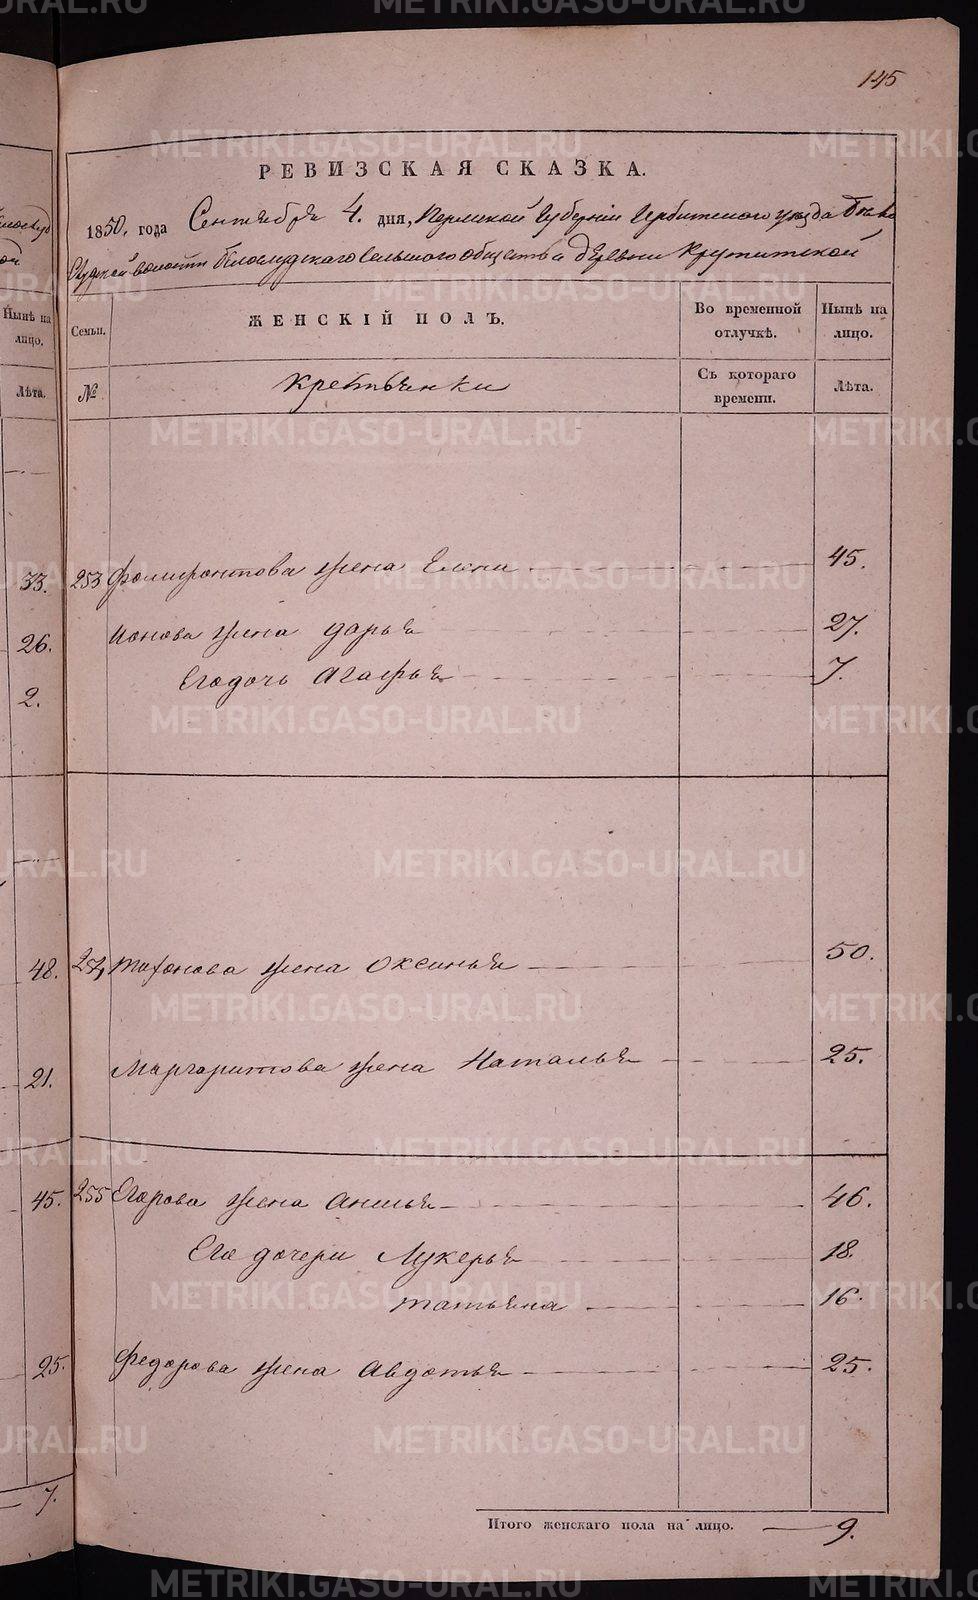 145
РЕВИЗСКАЯ СКАЗКА.
1850, года Сентября 4. дня, Пермской Губернии Ирбитского уезда Бело
слудской волости Белослудского сельского общества деревни Крутитской
Нынѣ на лицо.
Семьи.
ЖЕНСКІЙ ПОЛЪ.
Во временной отлучкѣ.
Нынѣ на лицо.
Лѣта.
№
Крестьянки
Съ котораго времени.
Лѣта.
33. 253 Фомифонтова жена Елена 45.
26. Ионова жена Дарья 27.
2. Его дочь Агафья 7.
48. Тихонова жена Оксинья 50.
21. Маргаритова жена Наталья 25.
45. 255 Егорова жена Анисья 46.
Его дочери Лукерья 18.
Татьяна 16.
25. Федорова жена Авдотья 25.
7.
Итого женскаго пола на лицо. 9.
METRIKI.GASO-URAL.RU